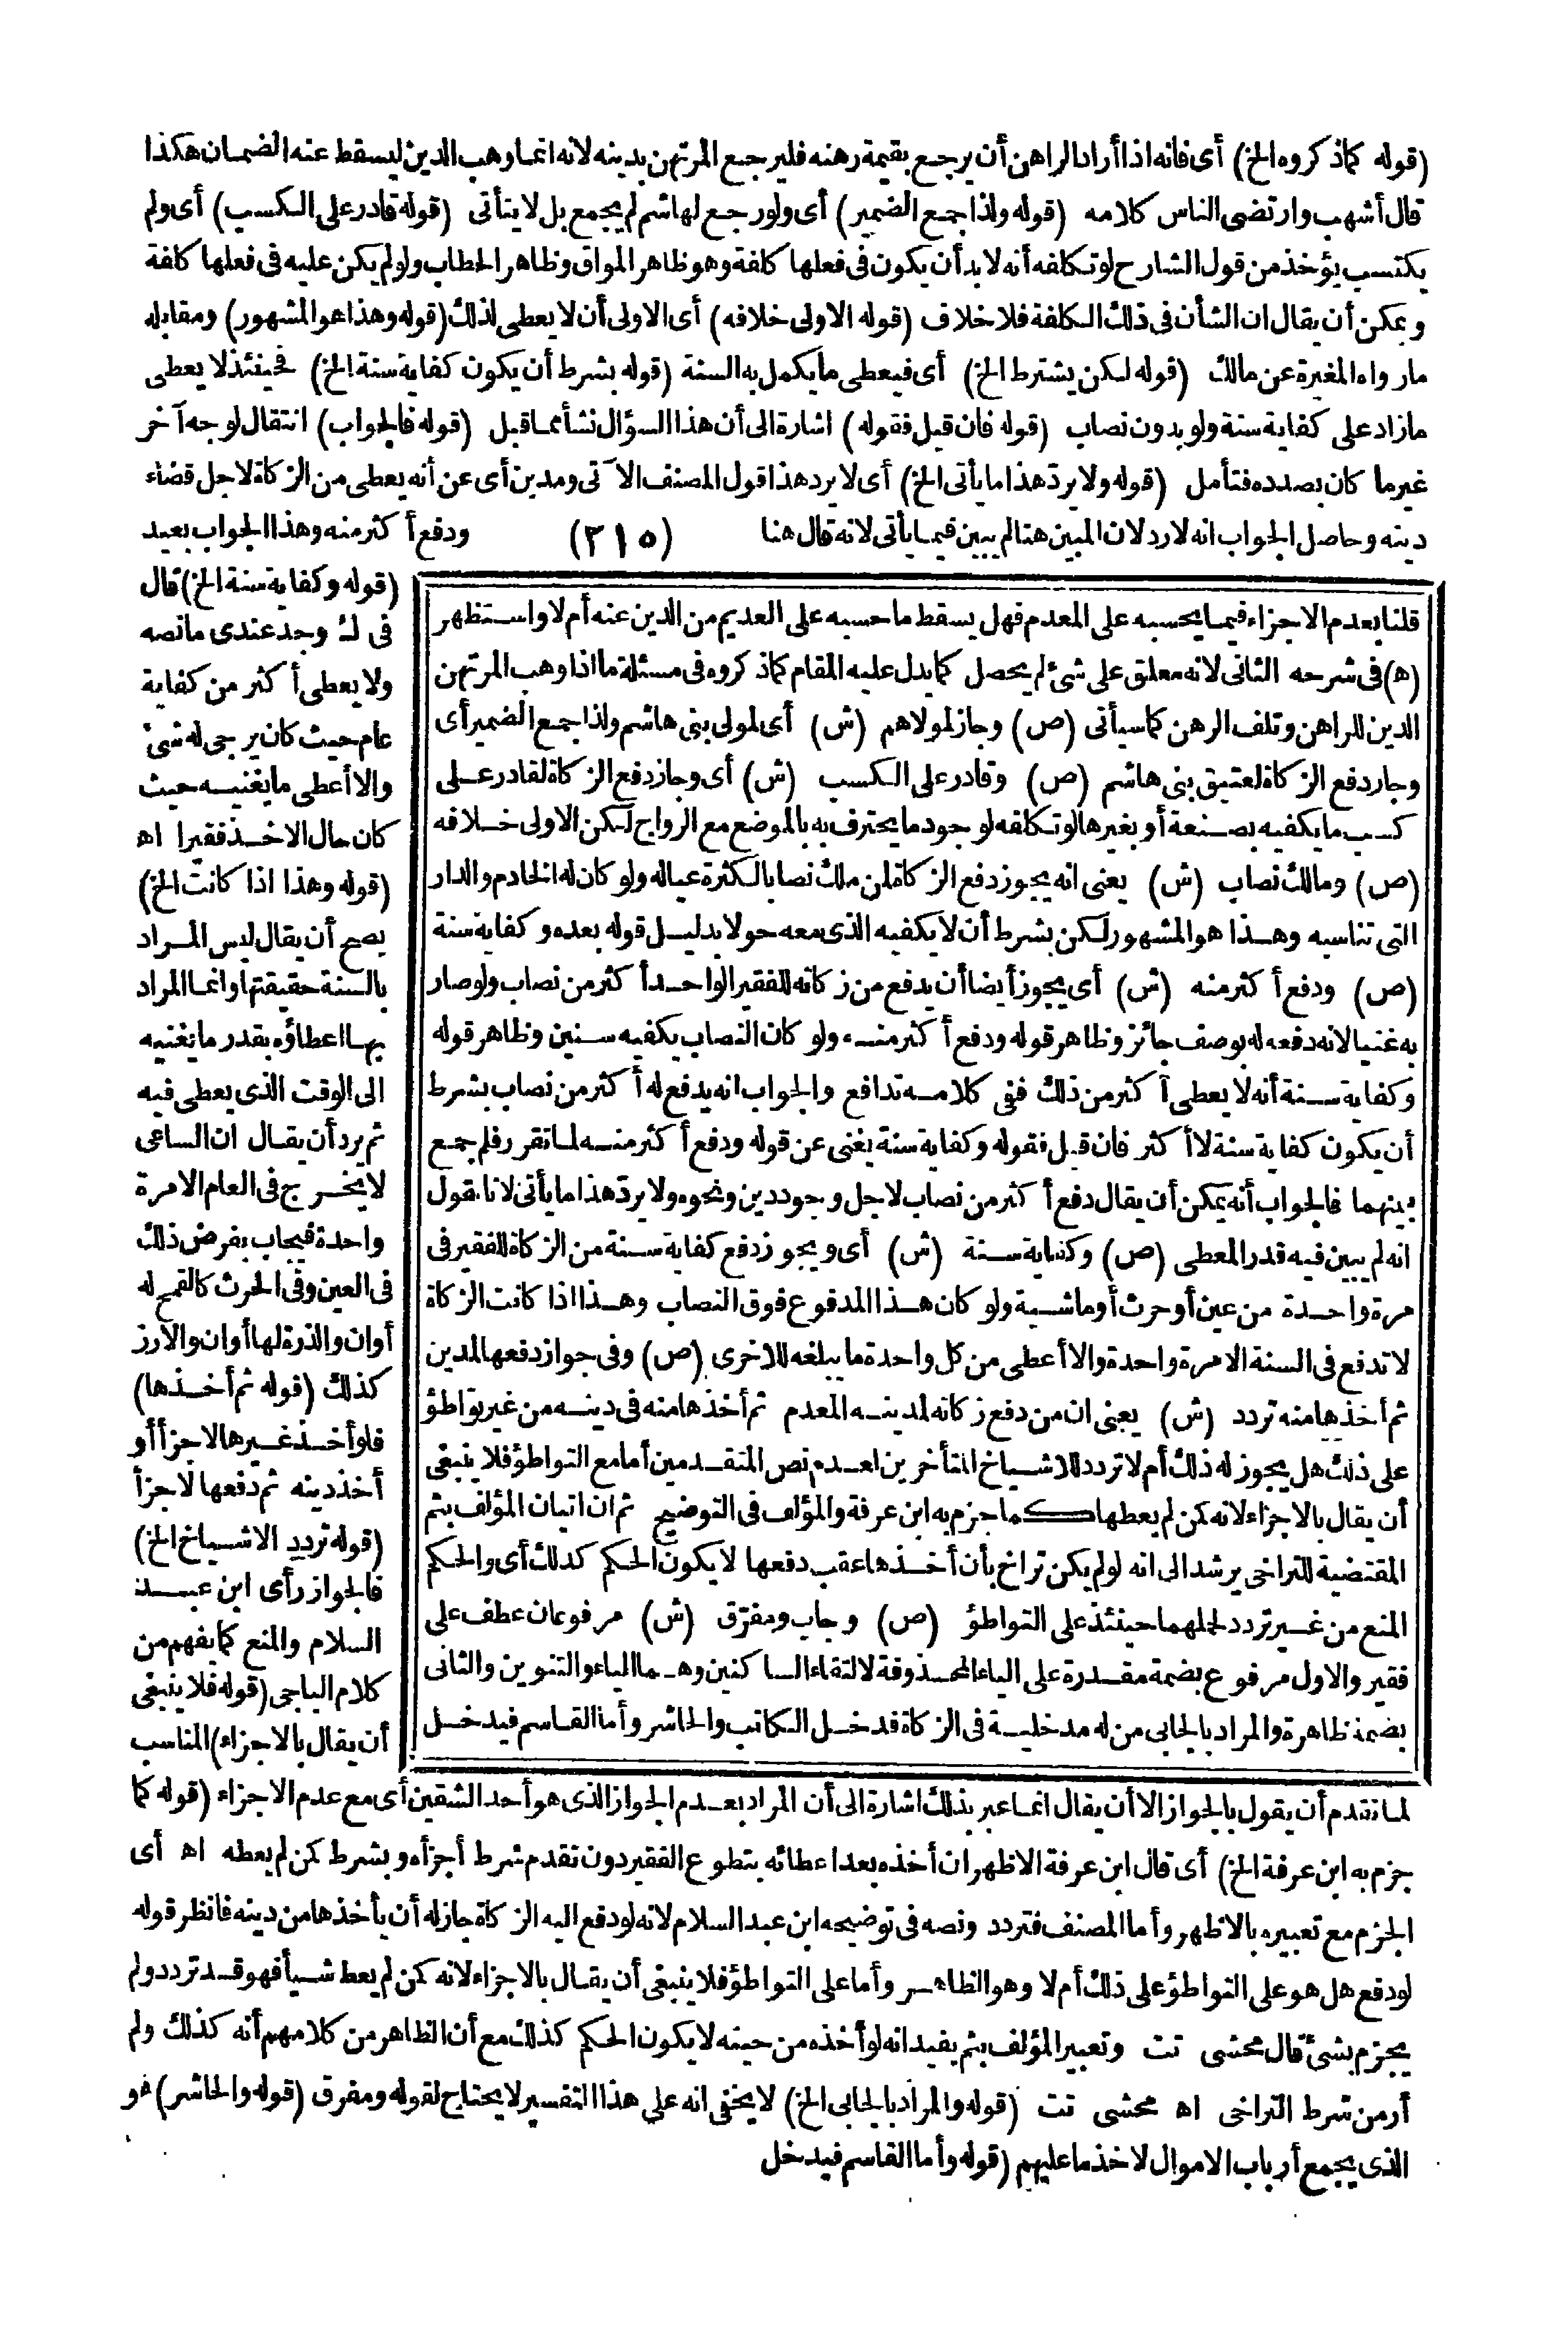 (قوله كما ذكروه الخ) أى فانه اذا أراد الراهن أن يرجع بقيمة رهنه فليرجع المرتهن بدينه لانه انما وهب الدين ليسقط عنه الضمان هكذا
قال أشهب وارتضى الناس كلامه (قوله ولذا جمع الضمير) أى ولو رجع لهاشم لم يجمع بل لا يتأتى (قوله قادر على الكسب) أى ولم
يكتسب يؤخذ من قول الشارح لو تكلفه أنه لابد أن يكون فى فعلها كلفة وهو ظاهر المواق وظاهر الحطاب ولو لم يكن عليه فى فعلها كلفة
ويمكن أن يقال ان الشأن فى ذلك الكلفة فلا خلاف (قوله الاولى خلافه) أى الاولى أن لا يعطى لذلك (قوله وهذا هو المشهور) ومقابله
مارواه المغيرة عن مالك (قوله لكن يشترط الخ) أى فيعطى ما يكمل به السنة (قوله بشرط أن يكون كفاية سنة الخ) فحينئذ لا يعطى
مازاد على كفاية سنة ولو بدون نصاب (قوله فان قيل فقوله) اشارة الى أن هذا السؤال نشأ مما قبل (قوله فالجواب) انتقال لوجه آخر
غير ما كان بصدده فتأمل (قوله ولا يرد هذا ما يأتى الخ) أى لا يرد هذا قول المصنف الآتى ومدين أى عن أنه يعطى من الزكاة لاجل قضاء
دينه وحاصل الجواب انه لا رد لان المبين هنا لم يبين فيما يأتى لانه قال هنا (٢١٥) ودفع أكثر منه وهذا الجواب بعيد
قلنا بعدم الاجزاء فيما يحسبه على المعدم فهل يسقط ما حسبه على العديم من الدين عنه أم لا واستظهر
(ه) فى شرحه الثانى لانه معلق على شئ لم يحصل كما يدل عليه المقام كما ذكروه فى مسئلة ما اذا وهب المرتهن
الدين للراهن وتلف الرهن كما سيأتى (ص) وجاز لمولاهم (ش) أى لمولى بنى هاشم ولذا جمع الضمير أى
وجاز دفع الزكاة لعتيق بنى هاشم (ص) وقادر على الكسب (ش) أى وجاز دفع الزكاة لقادر على
كسب ما يكفيه بصنعة أو بغيرها لو تكلفه لوجود ما يحترف به بالموضع مع الرواج لكن الاولى خلافه
(ص) ومالك نصاب (ش) يعنى انه يجوز دفع الزكاة لمن ملك نصابا لكثرة عياله ولو كان له الخادم والدار
التى تناسبه وهذا هو المشهور لكن بشرط أن لا يكفيه الذى معه حولا بدليل قوله بعده وكفاية سنة
(ص) ودفع أكثر منه (ش) أى يجوز أيضا أن يدفع من زكاته للفقير الواحد أكثر من نصاب ولو صار
به غنيا لانه دفعه له بوصف جائز وظاهر قوله ودفع أكثر منه ولو كان النصاب يكفيه سنين وظاهر قوله
وكفاية سنة أنه لا يعطى أكثر من ذلك ففى كلامه تدافع والجواب انه يدفع له أكثر من نصاب بشرط
أن يكون كفاية سنة لا أكثر فان قيل فقوله وكفاية سنة يغنى عن قوله ودفع أكثر منه لما تقرر فلم جمع
بينهما فالجواب أنه يمكن أن يقال دفع أكثر من نصاب لاجل وجود دين ونحوه ولا يرد هذا ما يأتى لانا نقول
انه لم يبين فيه قدر المعطى (ص) وكفاية سنة (ش) أى ويجوز دفع كفاية سنة من الزكاة للفقير فى
مرة واحدة من عين أو حرث أو ماشية ولو كان هذا المدفوع فوق النصاب وهذا اذا كانت الزكاة
لا تدفع فى السنة الا مرة واحدة والا أعطى من كل واحدة ما يبلغه للاخرى (ص) وفى جواز دفعها لمدين
ثم أخذها منه تردد (ش) يعنى ان من دفع زكاته لمدينه المعدم ثم أخذها منه فى دينه من غير تواطؤ
على ذلك هل يجوز له ذلك أم لا تردد للاشياخ المتأخرين لعدم نص المتقدمين أما مع التواطؤ فلا ينبغى
أن يقال بالاجزاء لانه كمن لم يعطها كما جزم به ابن عرفة والمؤلف فى التوضيح ثم ان اتيان المؤلف بثم
المقتضية للتراخى يرشد الى انه لو لم يكن تراخ بأن أخذها عقب دفعها لا يكون الحكم كذلك أى والحكم
المنع من غير تردد لحملهما حينئذ على التواطؤ (ص) وجاب ومفرّق (ش) مرفوعان عطف على
فقير والاول مرفوع بضمة مقدرة على الياء المحذوفة لالتقاء الساكنين وهما الياء والتنوين والثانى
بضمة ظاهرة والمراد بالجابى من له مدخلية فى الزكاة فدخل الكاتب والحاشر وأما القاسم فيدخل
(قوله وكفاية سنة الخ) قال
فى ك وجد عندى ما نصه
ولا يعطى أكثر من كفاية
عام حيث كان يرجى له شئ
والا أعطى ما يغنيه حيث
كان حال الاخذ فقيرا اه
(قوله وهذا اذا كانت الخ)
يصح أن يقال ليس المراد
بالسنة حقيقتها وانما المراد
بها اعطاؤه بقدر ما يغنيه
الى الوقت الذى يعطى فيه
ثم يرد أن يقال ان الساعى
لا يخرج فى العام الا مرة
واحدة فيجاب بفرض ذلك
فى العين وفى الحرث كالقمح له
أوان والذرة لها أوان والارز
كذلك (قوله ثم أخذها)
فلو أخذ غيرها لاجزأ أو
أخذ دينه ثم دفعها لاجزأ
(قوله تردد الاشياخ الخ)
فالجواز رأى ابن عبد
السلام والمنع كما يفهم من
كلام الباجى (قوله فلا ينبغى
أن يقال بالاجزاء) المناسب
لما تقدم أن يقول بالجواز الا أن يقال انما عبر بذلك اشارة الى أن المراد بعدم الجواز الذى هو أحد الشقين أى مع عدم الاجزاء (قوله كما
جزم به ابن عرفة الخ) أى قال ابن عرفة الاظهر ان أخذه بعد اعطائه بتطوع الفقير دون تقدم شرط أجزأه وبشرط كمن لم يعطه اه أى
الجزم مع تعبيره بالاظهر وأما المصنف فتردد ونصه فى توضيحه ابن عبد السلام لانه لو دفع اليه الزكاة جاز له أن يأخذها من دينه فانظر قوله
لو دفع هل هو على التواطؤ على ذلك أم لا وهو الظاهر وأما على التواطؤ فلا ينبغى أن يقال بالاجزاء لانه كمن لم يعط شيأ فهو قد تردد ولم
يجزم بشئ قال محشى تت وتعبير المؤلف بثم يفيد انه لو أخذه من حينه لا يكون الحكم كذلك مع أن الظاهر من كلامهم أنه كذلك ولم
أر من شرط التراخى اه محشى تت (قوله والمراد بالجابى الخ) لا يخفى انه على هذا التفسير لا يحتاج لقوله ومفرق (قوله والحاشر) هو
الذى يجمع أرباب الاموال لاخذ ما عليهم (قوله وأما القاسم فيدخل